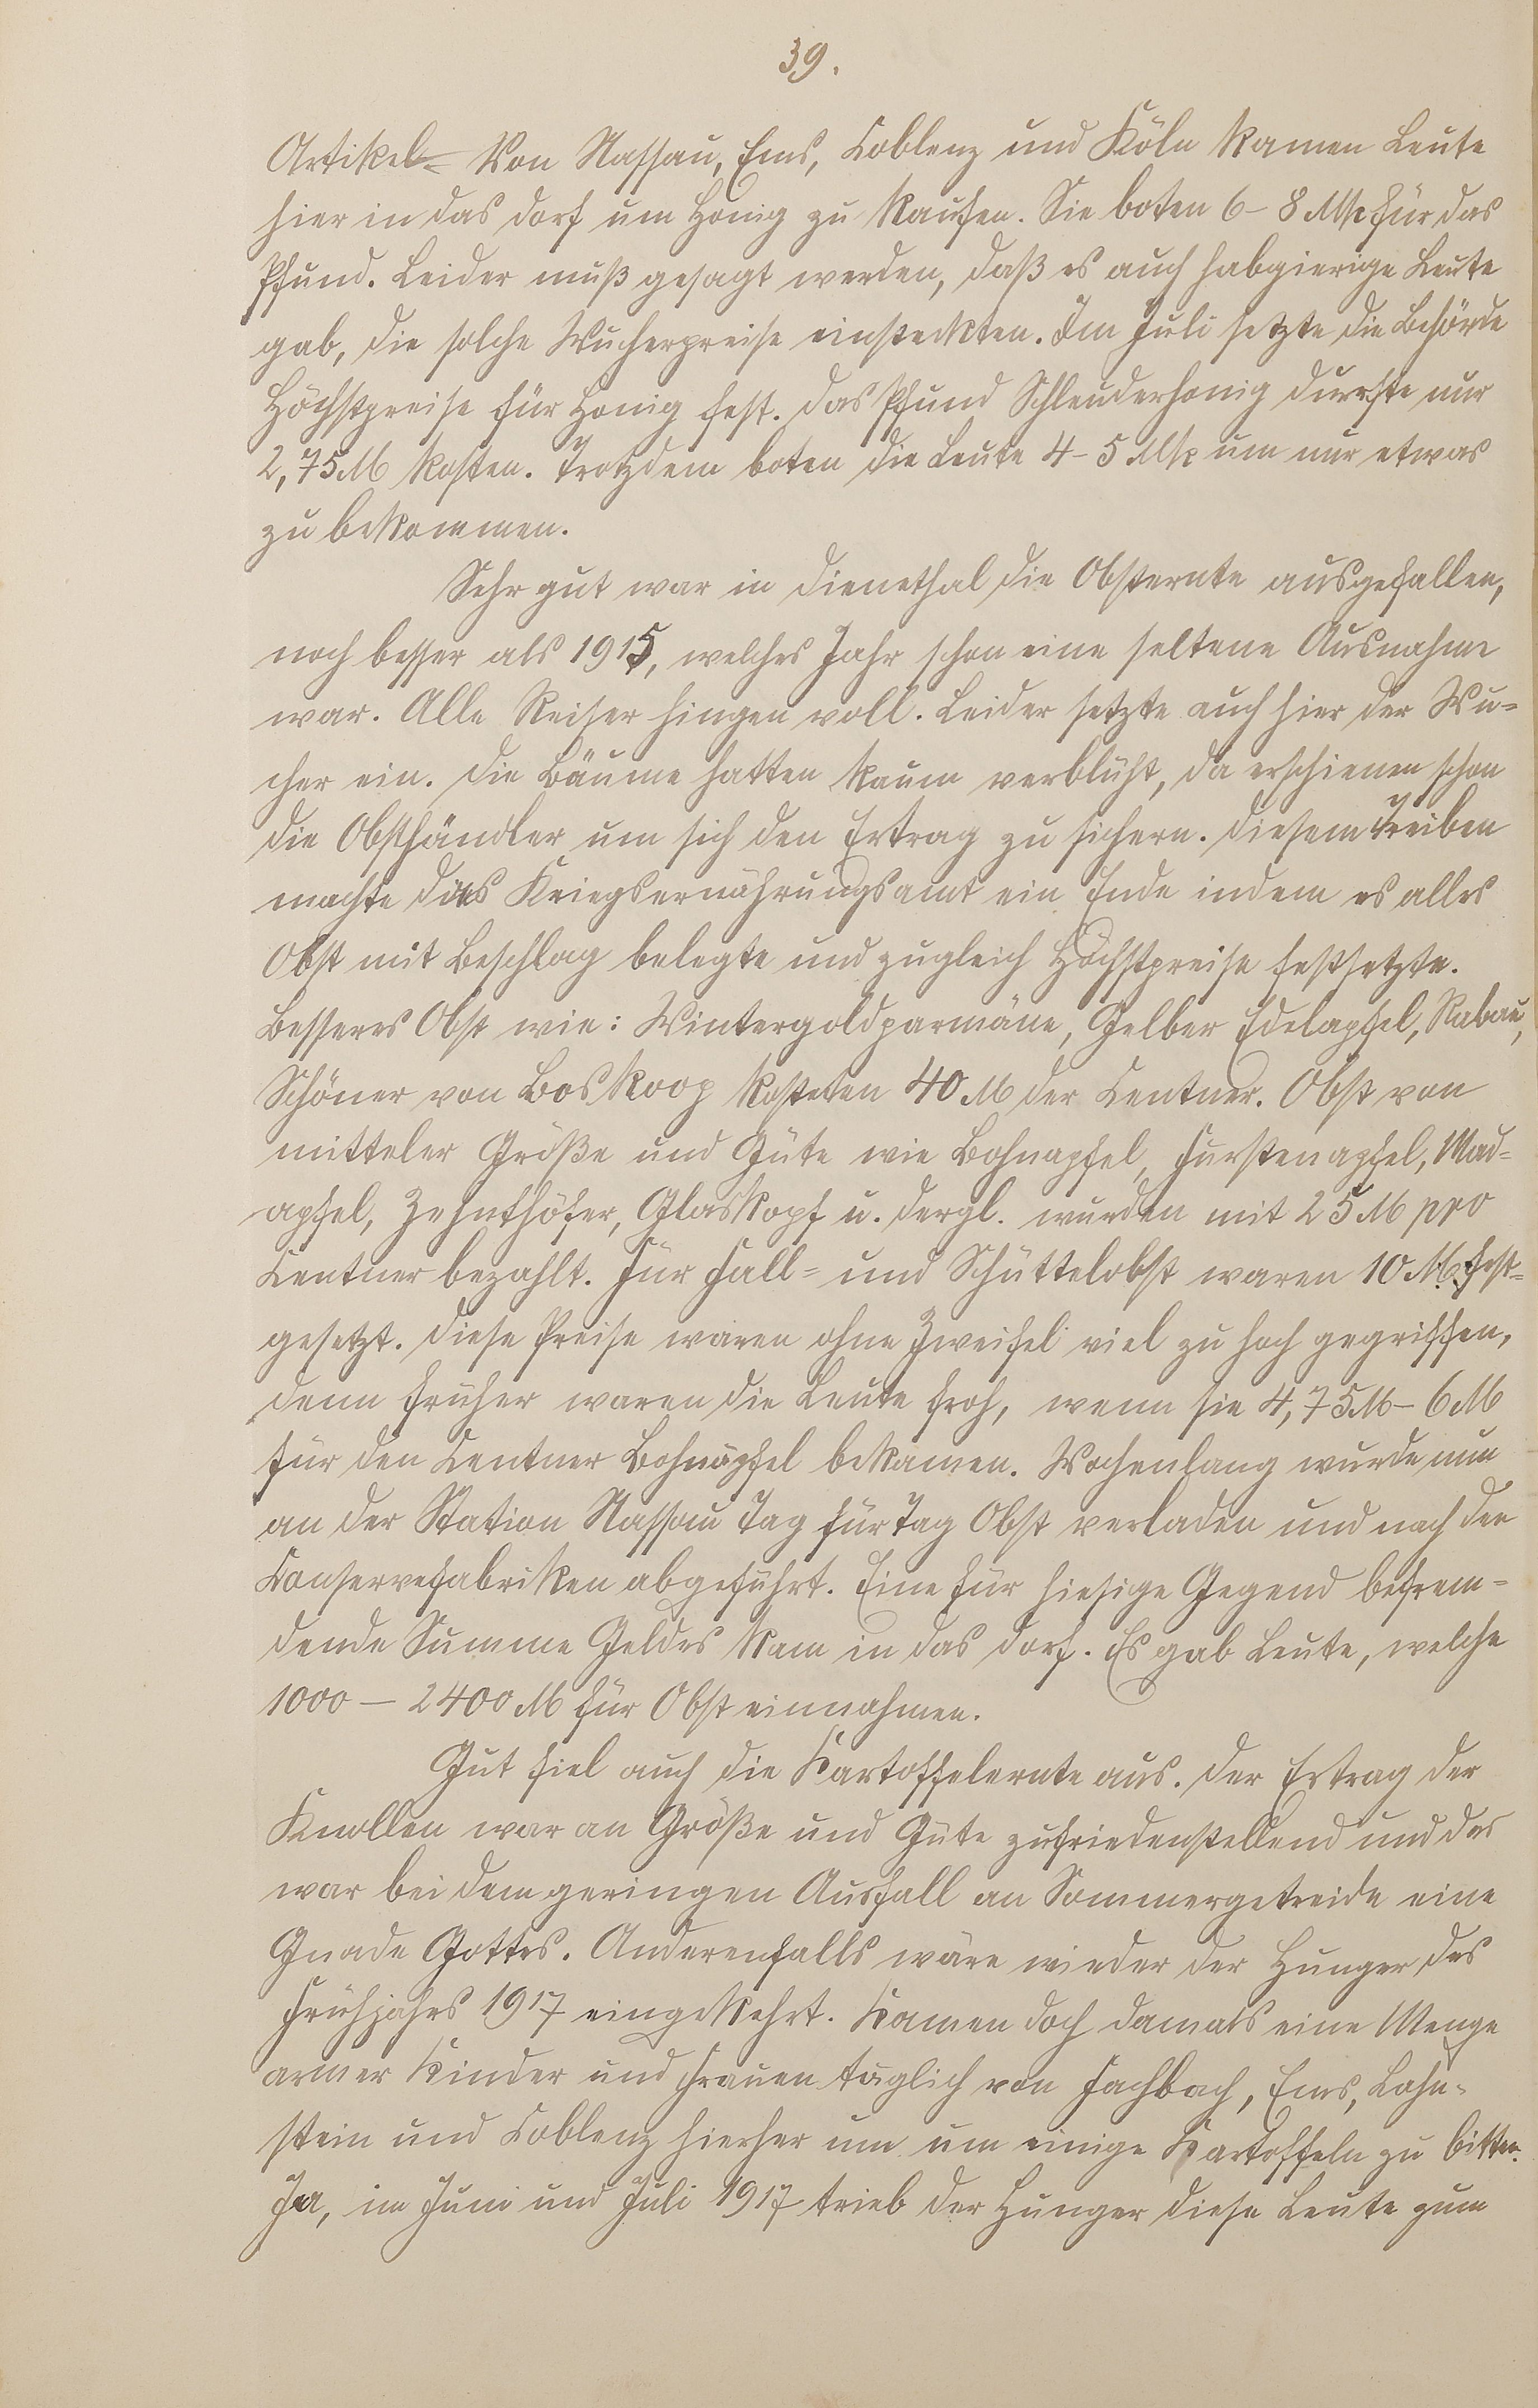 39.
Artikel. Von Nassau, Ems, Coblenz und Köln kamen Leute
hier in das Dorf um Honig zu kaufen. Sie boten 6–8 Mk für das
Pfund. Leider muß gesagt werden, daß es auch habgierige Leute
gab, die solche Wucherpreise einsteckten. Im Juli setzte die Behörde
Höchstpreise für Honig fest. Das Pfund Schleuderhonig durfte nur
2,75 M kosten. Trotzdem boten die Leute 4–5 Mk um nur etwas
zu bekommen.
Sehr gut war in Dienethal die Obsternte ausgefallen,
noch besser als 1915, welches Jahr schon eine seltene Ausnahme
war. Alle Reiser hingen voll. Leider setzte auch hier der Wu=
cher ein. Die Bäume hatten kaum verblüht, da erschienen schon
die Obsthändler um sich den Ertrag zu sichern. Diesem Treiben
machte das Kriegsernährungsamt ein Ende indem es alles
Obst mit Beschlag belegte und zugleich Höchstpreise festsetzte.
Besseres Obst wie: Wintergoldparmäne, Gelber Edelapfel, Rabau,
Schöner von Boskoop kosteten 40 M der Centner. Obst von
mitteler Größe und Güte wie Bohnapfel, Fürstenapfel, Mad=
apfel, Zehnthöfer, Glaskopf u. dergl. wurden mit 25 M pro
Centner bezahlt. Für Fall= und Schüttelobst waren 10 M fest=
gesetzt. Diese Preise waren ohne Zweifel viel zu hoch gegriffen,
denn früher waren die Leute froh, wenn sie 4,75 M – 6 M
für den Centner Bohnäpfel bekamen. Wochenlang wurde nun
an der Station Nassau Tag für Tag Obst verladen und nach den
Conservefabriken abgeführt. Eine für hiesige Gegend befrem=
dende Summe Geldes kam in das Dorf. Es gab Leute, welche
1000 – 2400 M für Obst einnahmen.
Gut fiel auch die Kartoffelernte aus. Der Ertrag der
Knollen war an Größe und Güte zufriedenstellend und das
war bei dem geringen Ausfall an Sommergetreide eine
Gnade Gottes. Anderenfalls wäre wieder der Hunger des
Frühjahrs 1917 eingekehrt. Kamen doch damals eine Menge
armer Kinder und Frauen täglich von Fachbach, Ems, Lahn=
stein und Coblenz hierher um um einige Kartoffeln zu bitten.
Ja, im Juni und Juli 1917 trieb der Hunger diese Leute zum